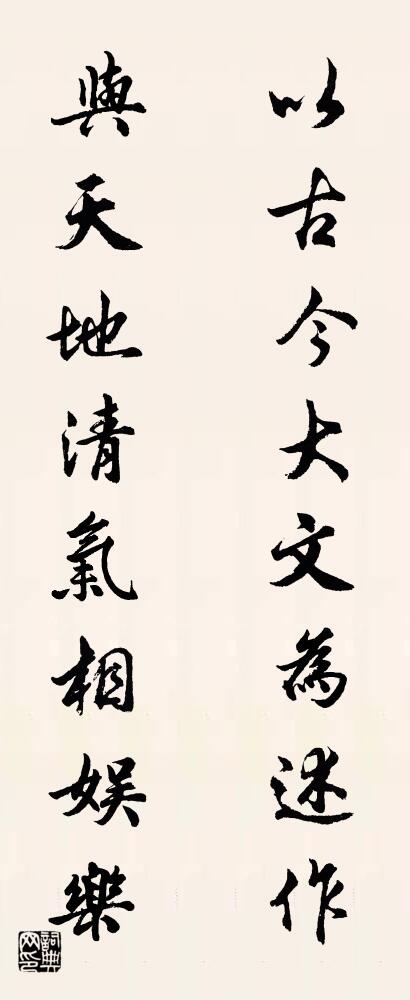 以古今大文為述作
與天地清氣相娛樂
詞典網印